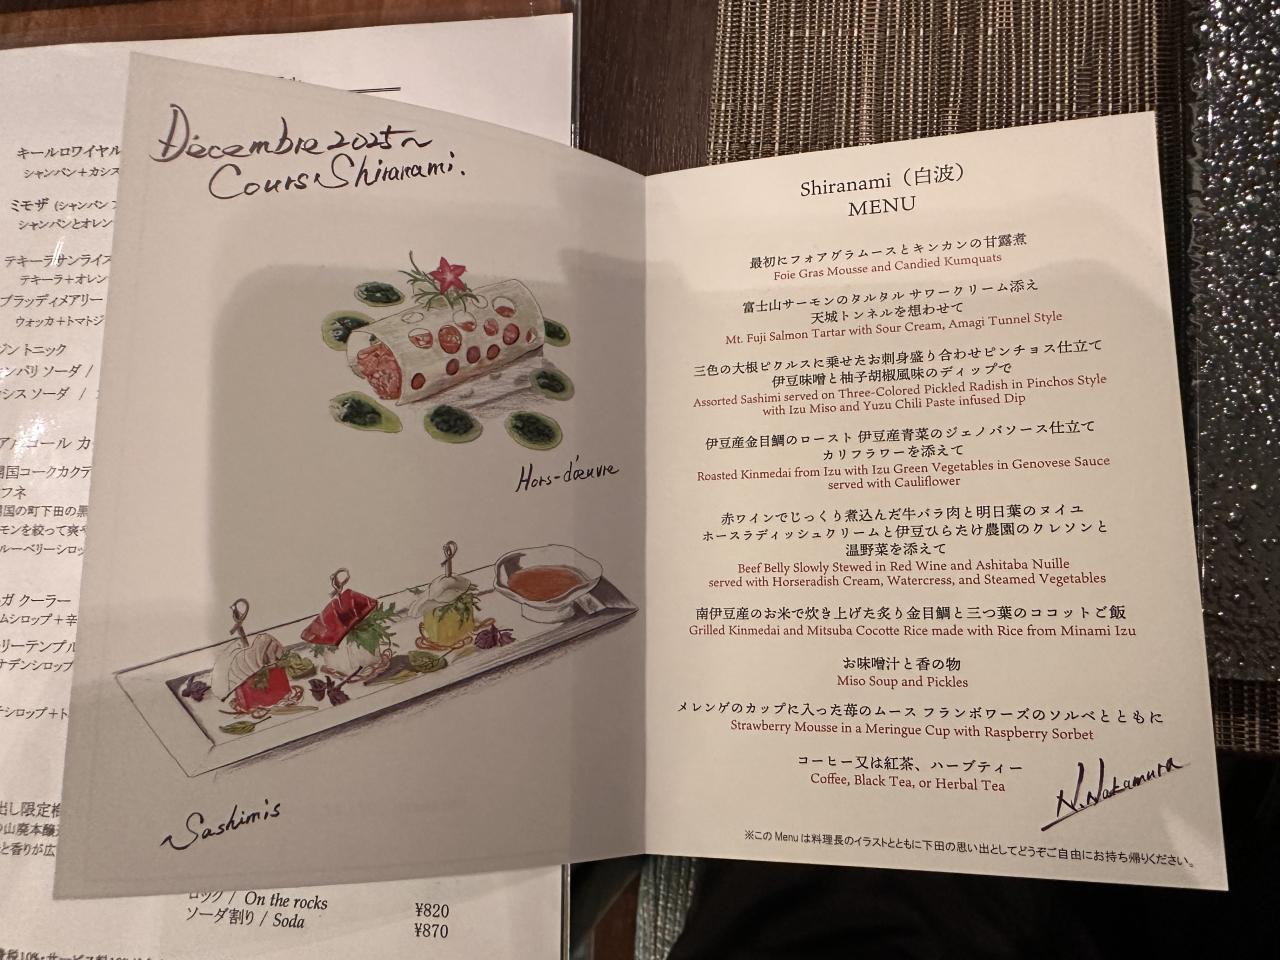 キールロワイヤル
シャンパン+カシス
ミモザ (シャンパン
シャンパンとオレン
テキーラサンライズ
テキーラ+オレン
ブラッディメアリー
ウォッカ+トマトジ
ジン トニック
ソーダ /
ソーダ /
ガ クーラー
ロック / On the rocks
¥820
ソーダ割り / Soda
¥870
Décembre 2025~
Cours Shiranami.
Hors-d'œuvre
Sashimis
Shiranami (白波)
MENU
最初にフォアグラムースとキンカンの甘露煮
Foie Gras Mousse and Candied Kumquats
富士山サーモンのタルタル サワークリーム添え
天城トンネルを想わせて
Mt. Fuji Salmon Tartar with Sour Cream, Amagi Tunnel Style
三色の大根ピクルスに乗せたお刺身盛り合わせピンチョス仕立て
伊豆味噌と柚子胡椒風味のディップで
Assorted Sashimi served on Three-Colored Pickled Radish in Pinchos Style
with Izu Miso and Yuzu Chili Paste infused Dip
伊豆産金目鯛のロースト 伊豆産青菜のジェノバソース仕立て
カリフラワーを添えて
Roasted Kinmedai from Izu with Izu Green Vegetables in Genovese Sauce
served with Cauliflower
赤ワインでじっくり煮込んだ牛バラ肉と明日葉のヌイユ
ホースラディッシュクリームと伊豆ひらたけ農園のクレソンと
温野菜を添えて
Beef Belly Slowly Stewed in Red Wine and Ashitaba Nuille
served with Horseradish Cream, Watercress, and Steamed Vegetables
南伊豆産のお米で炊き上げた炙り金目鯛と三つ葉のココットご飯
Grilled Kinmedai and Mitsuba Cocotte Rice made with Rice from Minami Izu
お味噌汁と香の物
Miso Soup and Pickles
メレンゲのカップに入った苺のムース フランボワーズのソルベとともに
Strawberry Mousse in a Meringue Cup with Raspberry Sorbet
コーヒー又は紅茶、ハーブティー
Coffee, Black Tea, or Herbal Tea
N.Nakamura
※この Menu は料理長のイラストとともに下田の思い出としてどうぞご自由にお持ち帰りください。